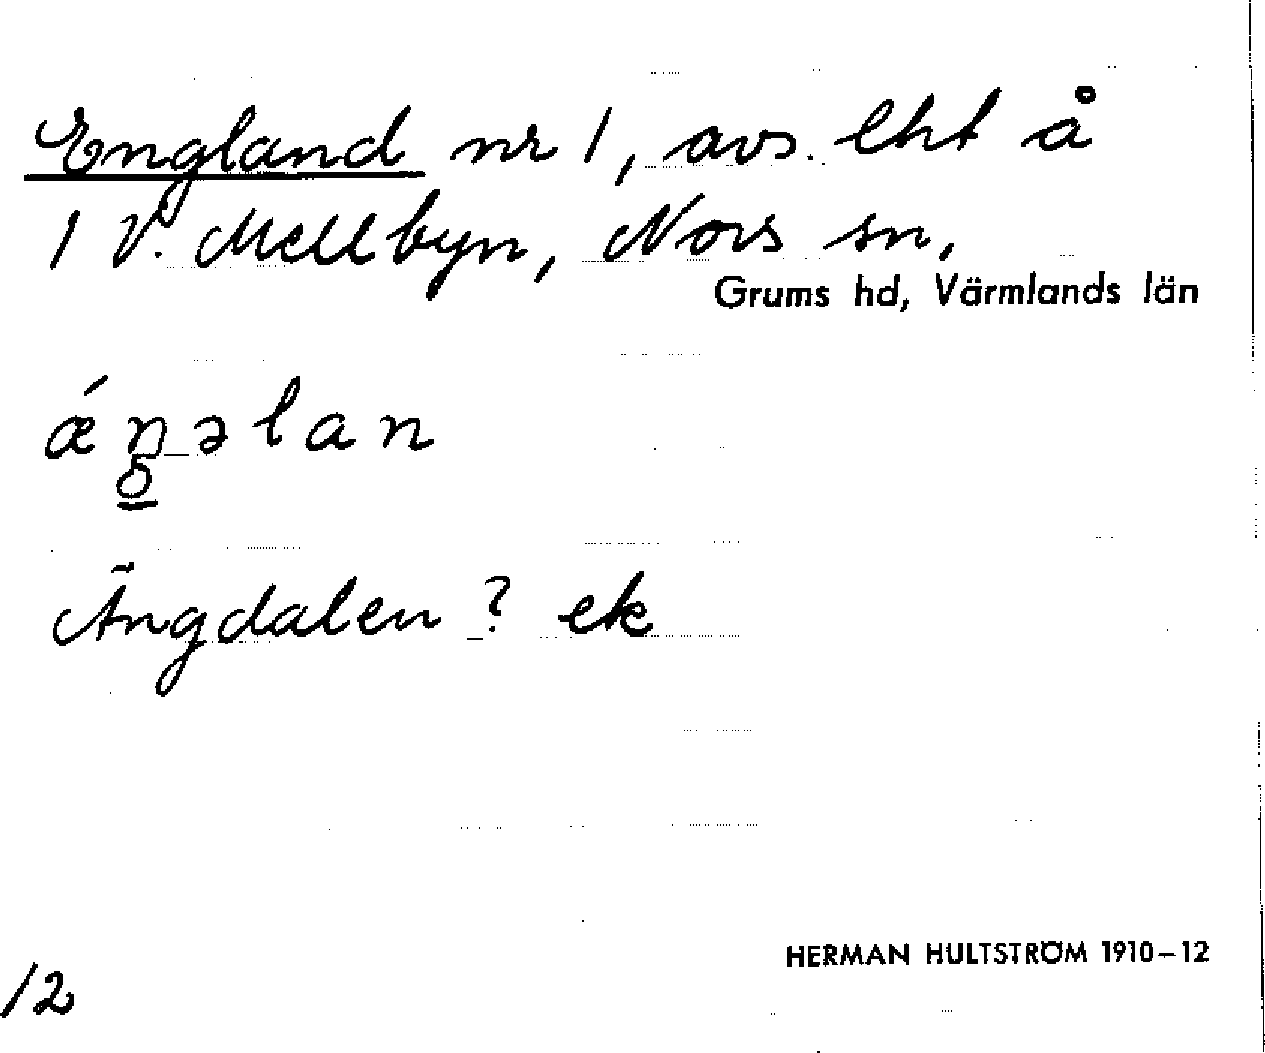 England nr 1, avs. lht å
1 V. Mellbyn, Nors sn,
Grums hd, Värmlands län
ǽŋəlan
Ängdalen? ek
HERMAN HULTSTRÖM 1910–12
12